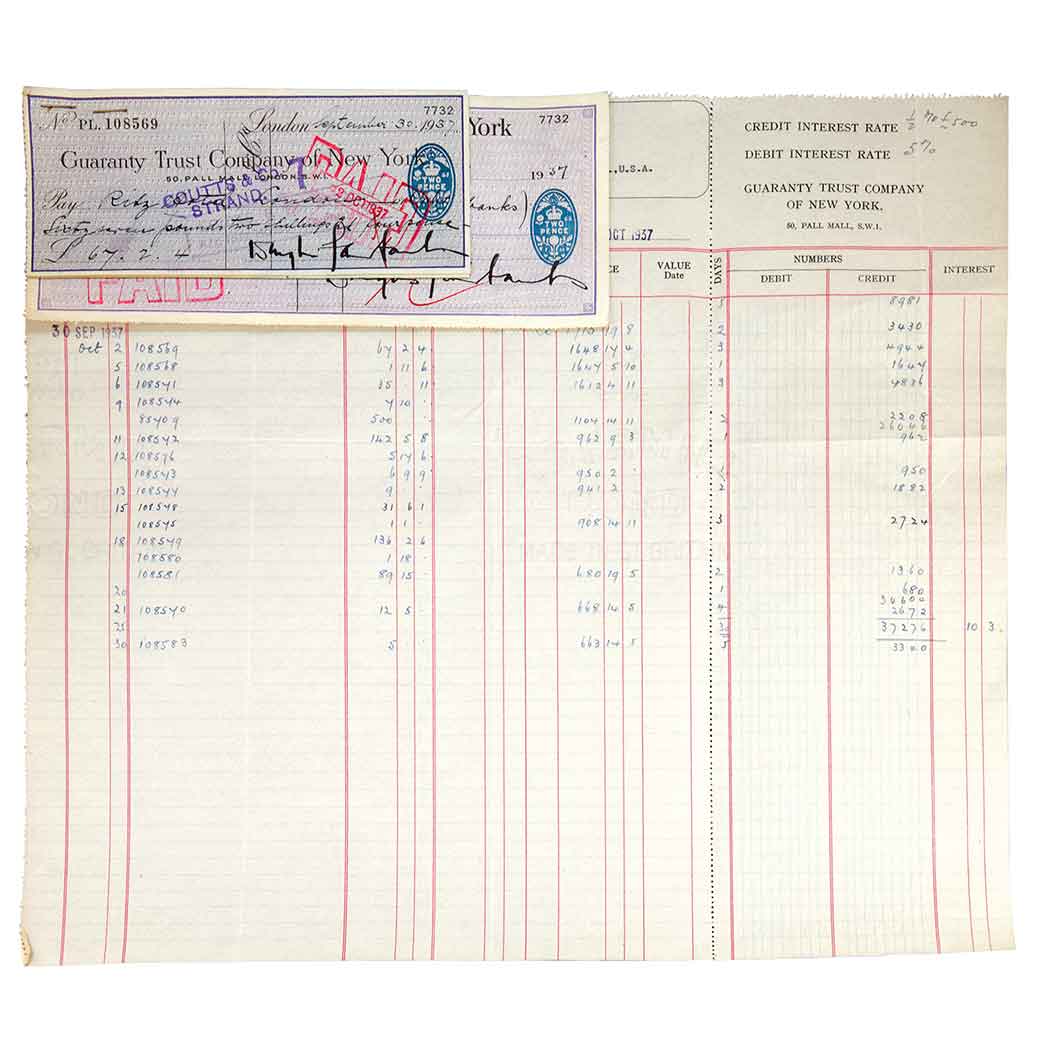 7732
No PL.108569
London September 30. 1937
Guaranty Trust Company of New York
50, PALL MALL, LONDON, S.W.1.
COUTTS & CO
STRAND
7
PAID
2 OCT 1937
TWO PENCE
Pay Ritz London
Sixty seven pounds two shillings & four pence
£ 67. 2. 4
York 7732
1937
banks):
TWO PENCE
PAID
, U.S.A.
OCT 1937
CREDIT INTEREST RATE ½ % £500
DEBIT INTEREST RATE 5%
GUARANTY TRUST COMPANY
OF NEW YORK.
50, PALL MALL, S.W.1.
CE VALUE Date DAYS NUMBERS DEBIT CREDIT INTEREST
5 8981
30 SEP 1937 19 8 2 3430
Oct 2 108569 67 2 4 1648 14 4 3 4944
5 108568 1 11 6 1647 5 10 1 1647
6 108541 35 . 11 1612 4 11 3 4836
9 108544 7 10 .
85409 500 1104 14 11 2 2208
26046
11 108542 142 5 8 962 9 3 1 962
12 108576 5 14 6
108543 6 9 9 950 2 . 1 950
13 108544 9 . 941 2 2 1882
15 108548 31 6 1
108545 1 1 . 908 14 11 3 2724
18 108549 136 2 6
108580 1 18 .
108581 89 15 . 680 19 5 2 1360
20 1 680
34600
21 108540 12 5 . 668 14 5 4 2672
25 37276 10 3.
30 108583 5 663 14 5 5 3320